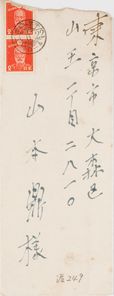 東京市大森区
山王一丁目二八一〇
山本鼎様
書249